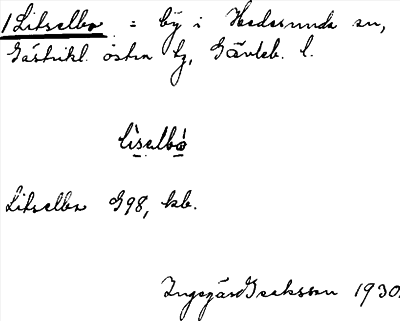 1 Litselbo = by i Hedesunda sn,
Gästrikl. östra tg, Gävleb. l.
lìselbò
Litselbo G98, kb.
Ingegärd Isaksson 1930.